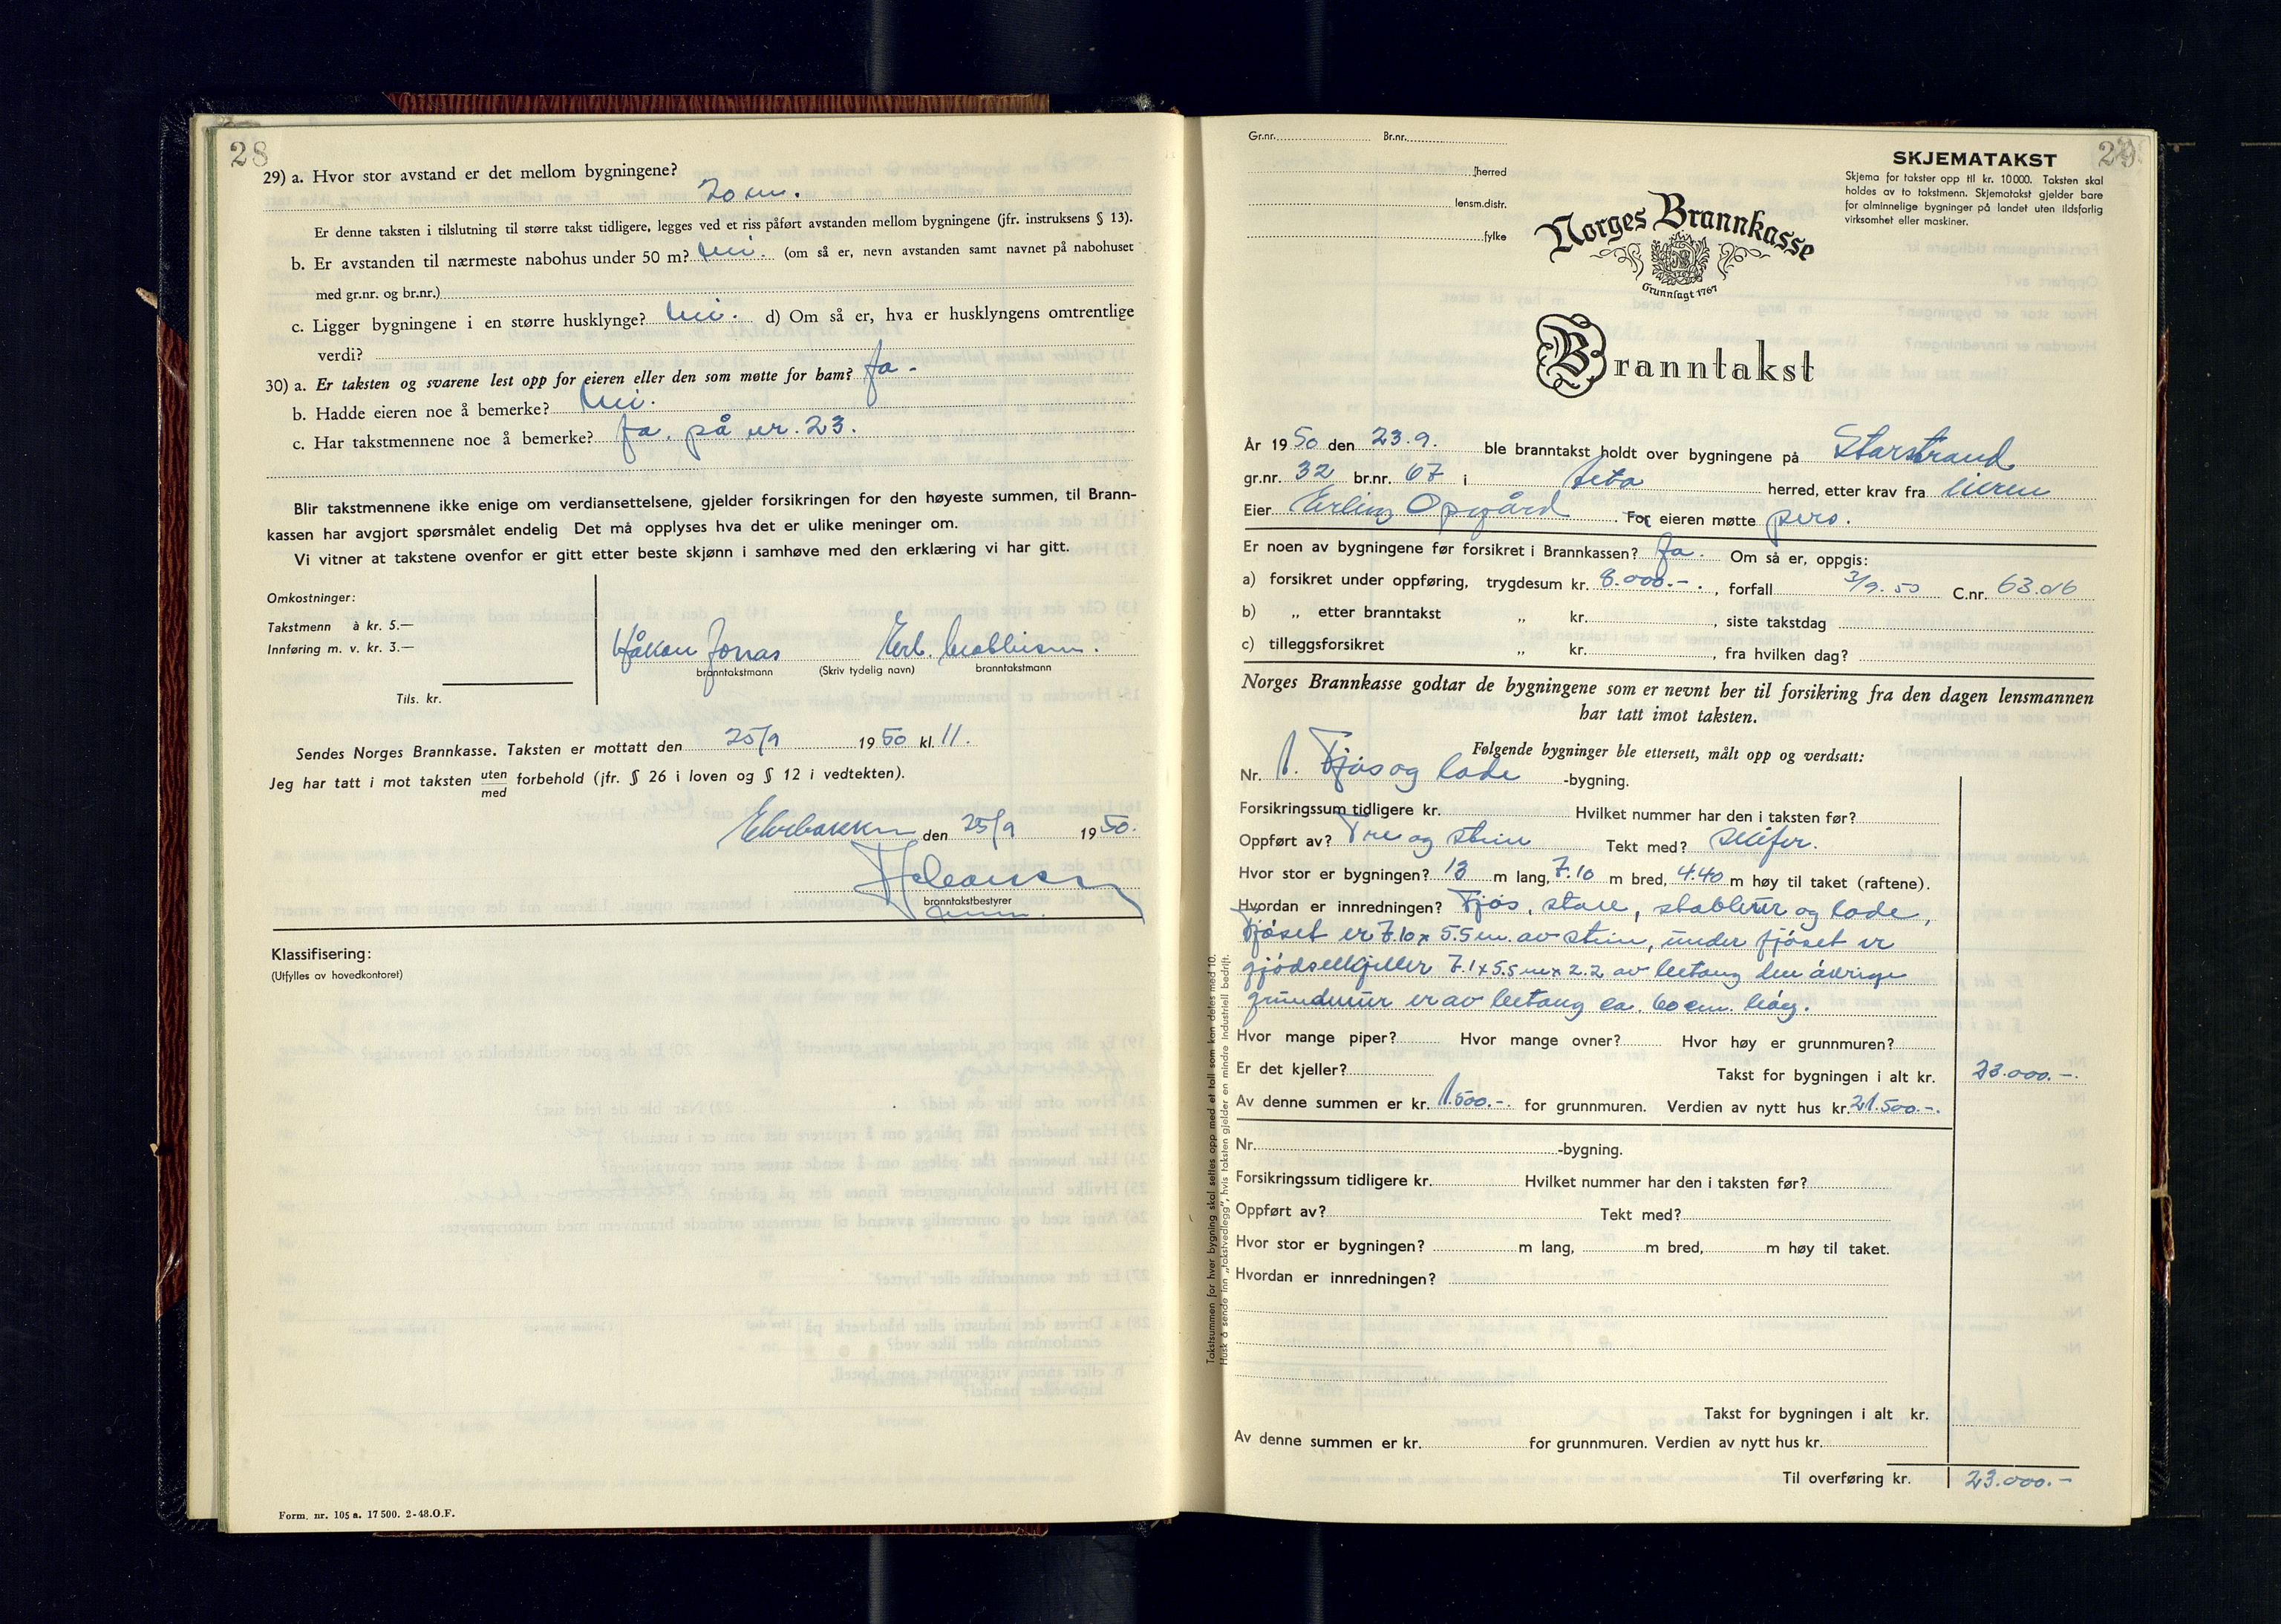 28
29) a. Hvor stor avstand er det mellom bygningene?
20 m.
Er denne taksten i tilslutning til større takst tidligere, legges ved et riss påført avstanden mellom bygningene (jfr. instruksens § 13).
b. Er avstanden til nærmeste nabohus under 50 m? Nei. (om så er, nevn avstanden samt navnet på nabohuset
med gr.nr. og br.nr.)
c. Ligger bygningene i en større husklynge? Nei. d) Om så er, hva er husklyngens omtrentlige
verdi?
30) a. Er taksten og svarene lest opp for eieren eller den som møtte for ham? Ja -
b. Hadde eieren noe å bemerke? Nei.
c. Har takstmennene noe å bemerke? Ja, på nr. 23.
Blir takstmennene ikke enige om verdiansettelsene, gjelder forsikringen for den høyeste summen, til Brann-
kassen har avgjort spørsmålet endelig Det må opplyses hva det er ulike meninger om.
Vi vitner at takstene ovenfor er gitt etter beste skjønn i samhøve med den erklæring vi har gitt.
Omkostninger:
Takstmenn à kr. 5.—
Innføring m. v. kr. 3.—
Tils. kr.
Håkon Jonas Erl.
branntakstmann (Skriv tydelig navn) branntakstmann
Sendes Norges Brannkasse. Taksten er mottatt den 25/9 1950 kl. 11.
Jeg har tatt i mot taksten uten forbehold (jfr. § 26 i loven og § 12 i vedtekten).
med
Elvebakken den 25/9 1950.
branntakstbestyrer
Klassifisering:
(Utfylles av hovedkontoret)
Form. nr. 105 a. 17 500. 2-48.O.F.
Gr.nr. Br.nr.
herred
lensm.distr.
fylke
29
SKJEMATAKST
Skjema for takster opp til kr. 10 000. Taksten skal
holdes av to takstmenn. Skjematakst gjelder bare
for alminnelige bygninger på landet uten ildsfarlig
virksomhet eller maskiner.
Norges Brannkasse
Grunnlagt 1767
Branntakst
År 1950 den 23.9. ble branntakst holdt over bygningene på Storstrand
gr.nr. 32 br.nr. 67 i herred, etter krav fra eieren
Eier Erling Opgård For eieren møtte pers.
Er noen av bygningene før forsikret i Brannkassen? Ja. Om så er, oppgis:
a) forsikret under oppføring, trygdesum kr. 8.000.-., forfall 3/9.50 C.nr. 63.016
b) „ etter branntakst „ kr. , siste takstdag
c) tilleggsforsikret „ kr. , fra hvilken dag?
Norges Brannkasse godtar de bygningene som er nevnt her til forsikring fra den dagen lensmannen
har tatt imot taksten.
Følgende bygninger ble ettersett, målt opp og verdsatt:
Nr. 1. Fjøs og lade -bygning.
Forsikringssum tidligere kr. Hvilket nummer har den i taksten før?
Oppført av? Tre og stein Tekt med? Skifer.
Hvor stor er bygningen? 13 m lang, 7.10 m bred, 4.40 m høy til taket (raftene).
Hvordan er innredningen? Fjøs, stall, og lade,
Fjøset er 7.10 x 5.5 m. av stein, under fjøset er
gjødselkjeller 7.1 x 5.5 m x 2.2 av betong den øvrige
grundmur er av betong ca. 60 cm. høg.
Hvor mange piper? Hvor mange ovner? Hvor høy er grunnmuren?
Er det kjeller? Takst for bygningen i alt kr. 23.000.-.
Av denne summen er kr. 1.500.-. for grunnmuren. Verdien av nytt hus kr. 21.500.-.
Nr. -bygning.
Forsikringssum tidligere kr. Hvilket nummer har den i taksten før?
Oppført av? Tekt med?
Hvor stor er bygningen? m lang, m bred, m høy til taket.
Hvordan er innredningen?
Takst for bygningen i alt kr.
Av denne summen er kr. for grunnmuren. Verdien av nytt hus kr.
Til overføring kr. 23.000.-
Takstsummen for hver bygning skal settes opp med et tall som kan deles med 10.
Husk å sende inn „takstvedlegg", hvis taksten gjelder en mindre industriell bedrift.